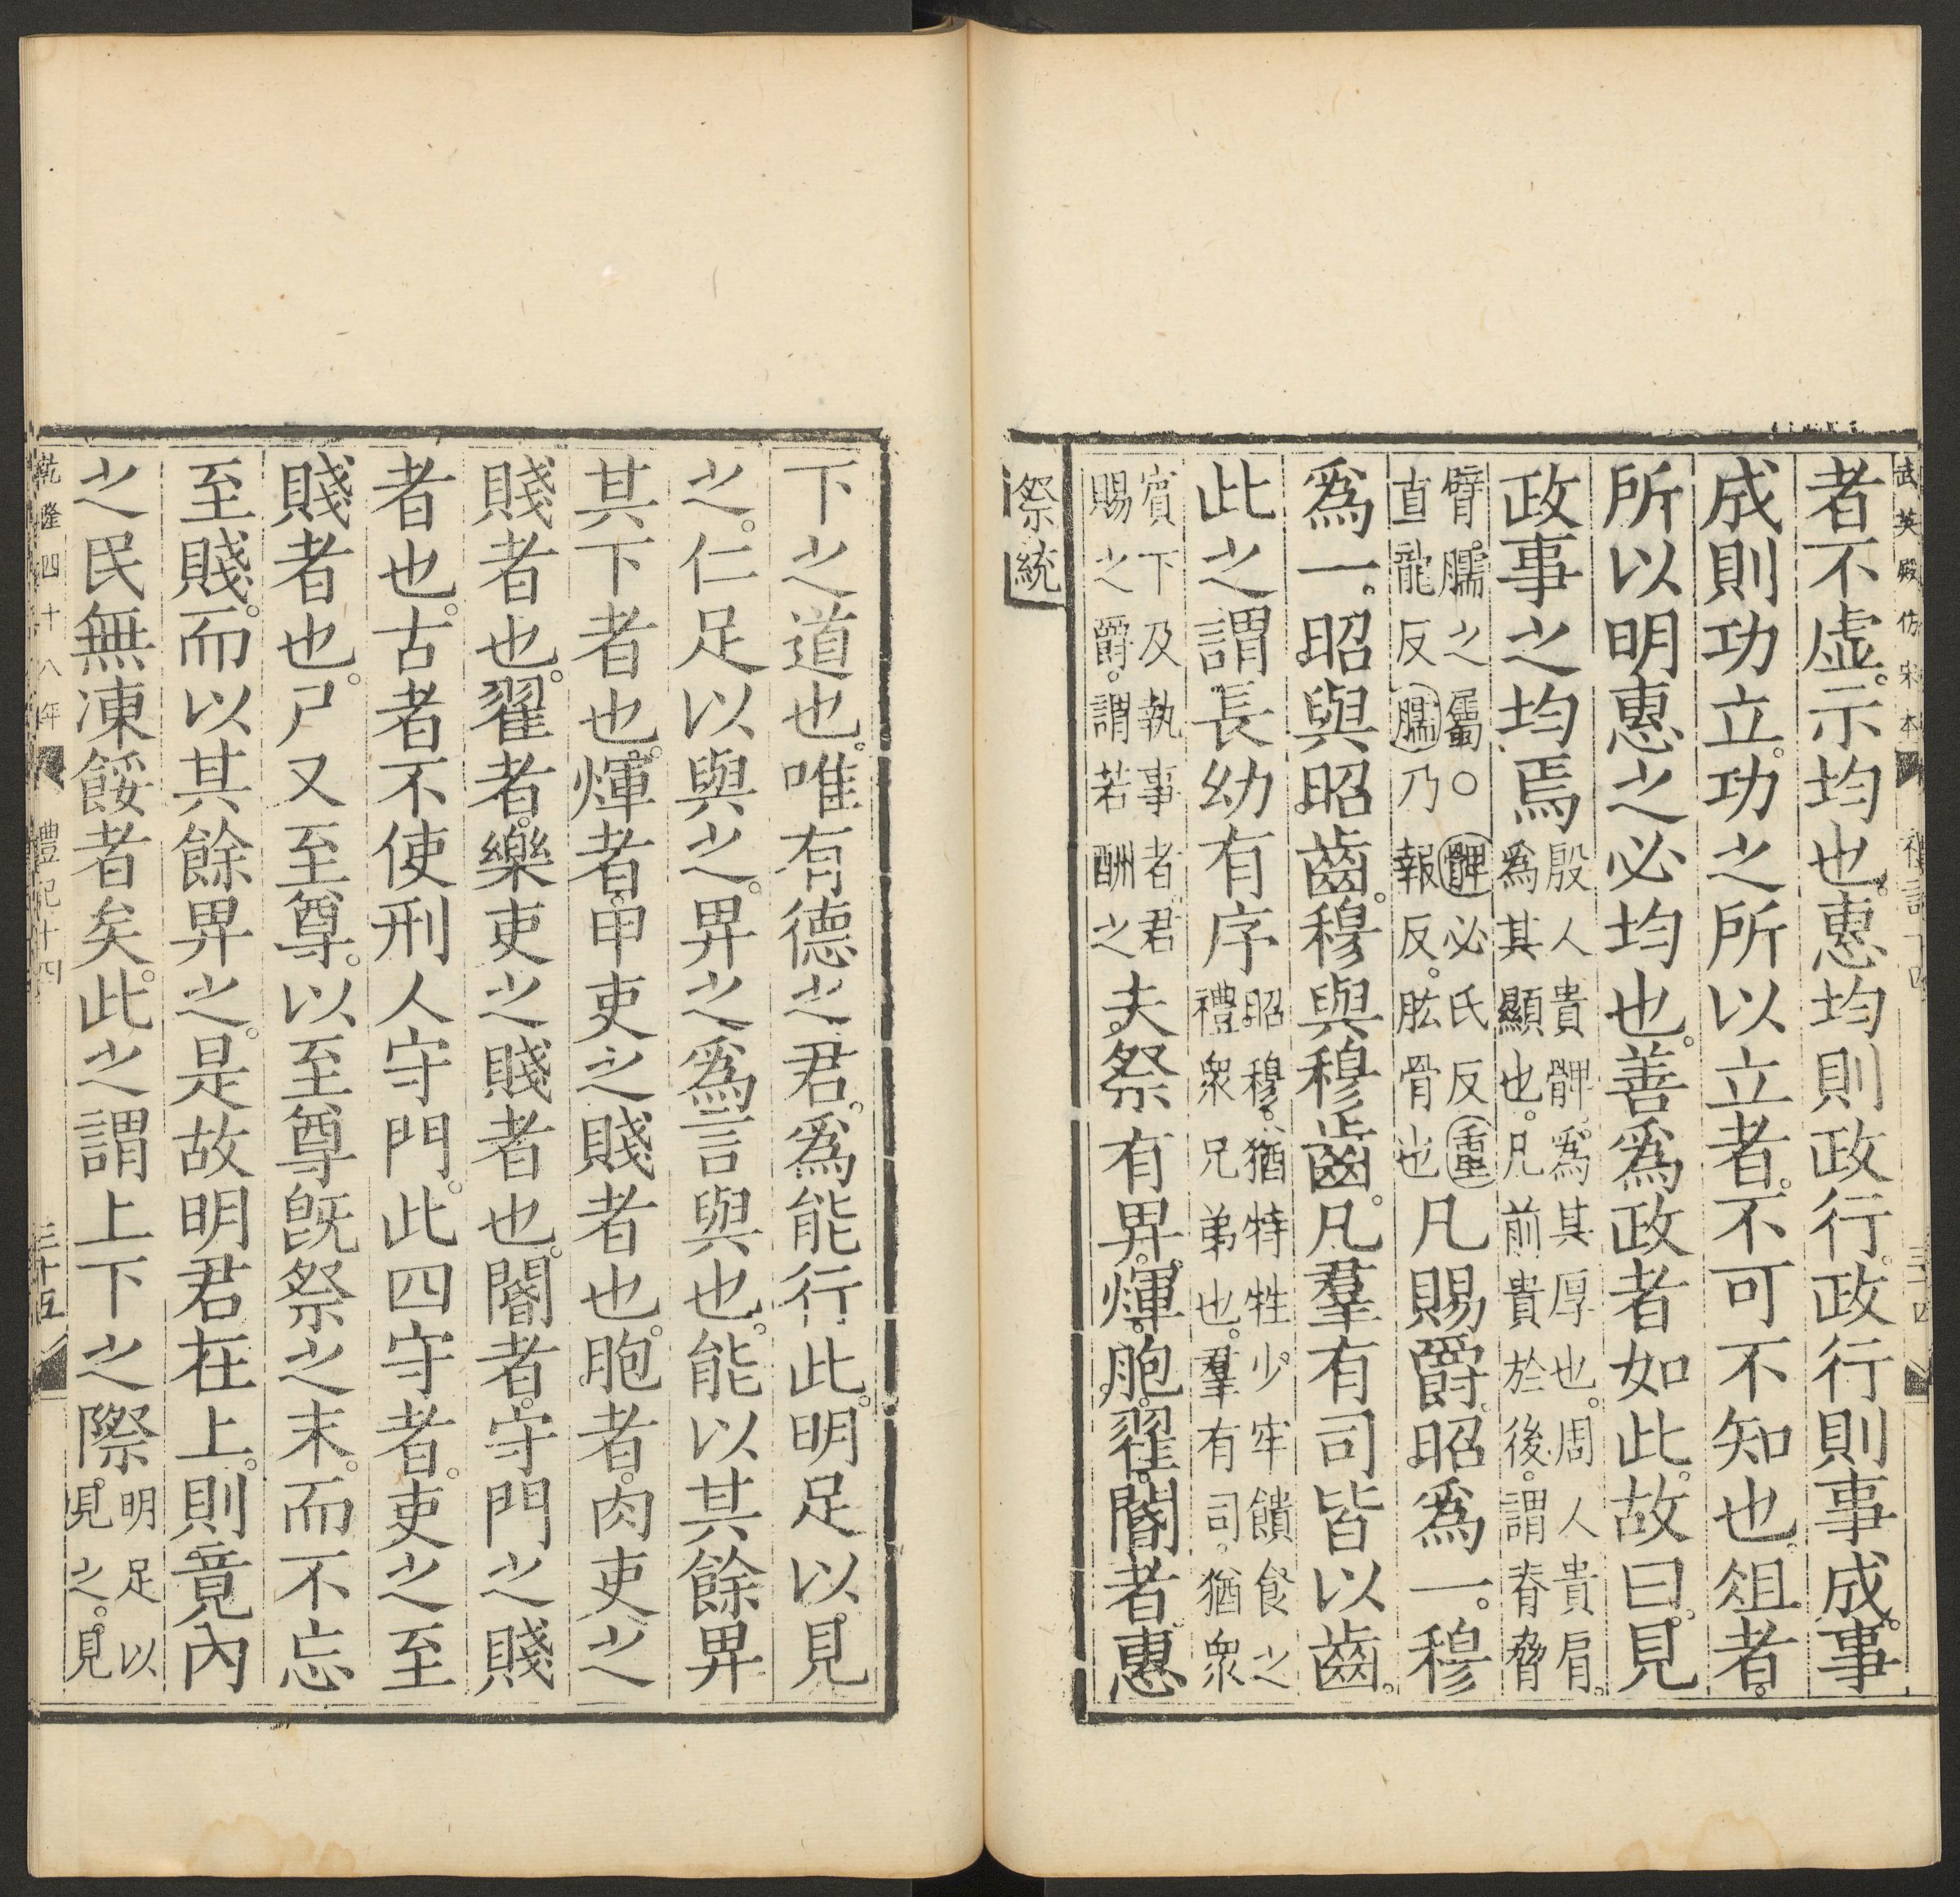 武英殿仿宋本 禮記十四 三十四
者不虛。示均也。惠均則政行。政行則事成。事
成則功立。功之所以立者。不可不知也。俎者。
所以明惠之必均也。善爲政者如此。故曰。見
政事之均焉殷人貴髀。爲其厚也。周人貴肩。爲其顯也。凡前貴於後。謂脊脅
臂臑之屬○髀必氏反重直龍反臑乃報反。肱骨也凡賜爵。昭爲一。穆
爲一。昭與昭齒。穆與穆齒。凡羣有司皆以齒。
此之謂長幼有序昭穆。猶特牲少牢饋食之禮衆兄弟也。羣有司。猶衆
賓下及執事者。君賜之爵。謂若酬之夫祭有畀。煇。胞。翟。閽者。惠
祭統
下之道也。唯有德之君。爲能行此。明足以見
之。仁足以與之。畀之爲言與也。能以其餘畀
其下者也。煇者。甲吏之賤者也。胞者。肉吏之
賤者也。翟者。樂吏之賤者也。閽者。守門之賤
者也。古者不使刑人守門。此四守者。吏之至
賤者也。尸又至尊。以至尊旣祭之末。而不忘
至賤。而以其餘畀之。是故明君在上。則竟內
之民無凍餒者矣。此之謂上下之際明足以見之。見
乾隆四十八年 禮記十四 三十五